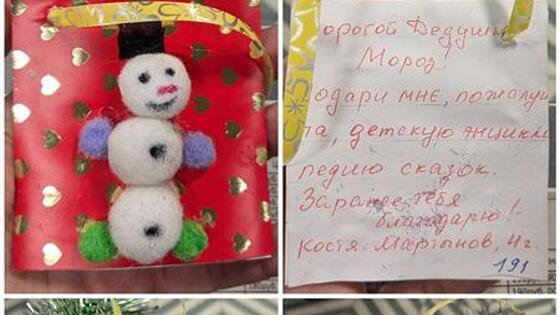 орогой Дедушк
Мороз!
одари мне, пожалуй
та, детскую энцикло
педию сказок.
Заранее тебя
благодарю!
Костя Мартанов, 4 г.
191